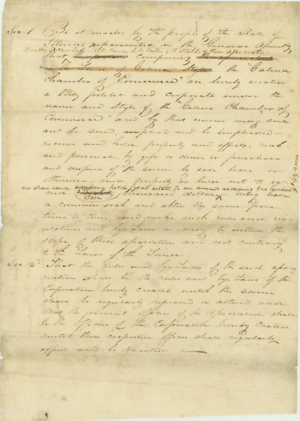 Sec. 1 Be it enacted by the people of the State of
Illinois represented in the General Assembly
That
the Galena
Chamber of Commerce" are hereby created
a body politic and corporate under the
name and style of the "Galena Chamber of
Commerce" and by that name may sue
and be sued implead and be impleaded
receive and hold property and effects, real
and personal by gift or devise or purchase
and dispose of the same by sale lease or
otherwise said property so held not to
dollars to have
a common seal and alter the same from
time to time and make such rules and reg-
ulations and by laws as may be within the
scope of their and not contrary
to the laws of the land.
Sec 2 That the rules and by laws of the said asso-
ciation shall be the rules and by laws of the
Corporation hereby created until the same
shall be regularly repealed or altered and
that the present officers of the Association shall
be the officers of the Corporation hereby created
until their respective offices shall regularly
expire and be vacated